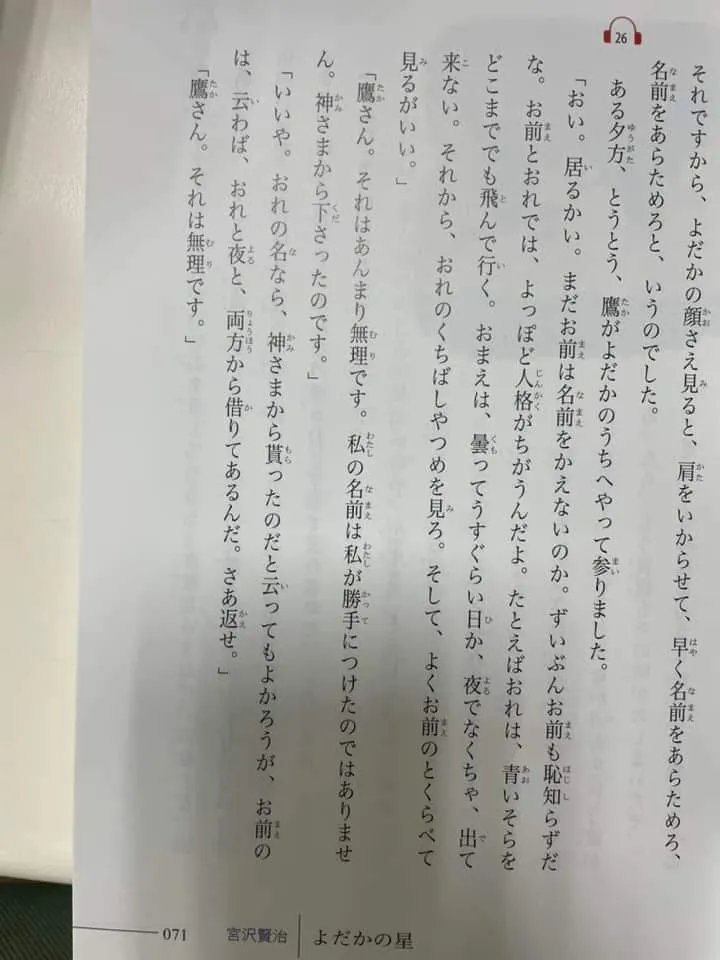 26
それですから、よだかの顔さえ見ると、肩をいからせて、早く名前をあらためろ、
名前をあらためろと、いうのでした。
ある夕方、とうとう、鷹がよだかのうちへやって参りました。
「おい。居るかい。まだお前は名前をかえないのか。ずいぶんお前も恥知らずだ
な。お前とおれでは、よっぽど人格がちがうんだよ。たとえばおれは、青いそらを
どこまででも飛んで行く。おまえは、曇ってうすぐらい日か、夜でなくちゃ、出て
来ない。それから、おれのくちばしやつめを見ろ。そして、よくお前のとくらべて
見るがいい。」
「鷹さん。それはあんまり無理です。私の名前は私が勝手につけたのではありませ
ん。神さまから下さったのです。」
「いいや。おれの名なら、神さまから貰ったのだと云ってもよかろうが、お前の
は、云わば、おれと夜と、両方から借りてあるんだ。さあ返せ。」
「鷹さん。それは無理です。」
071 宮沢賢治 よだかの星